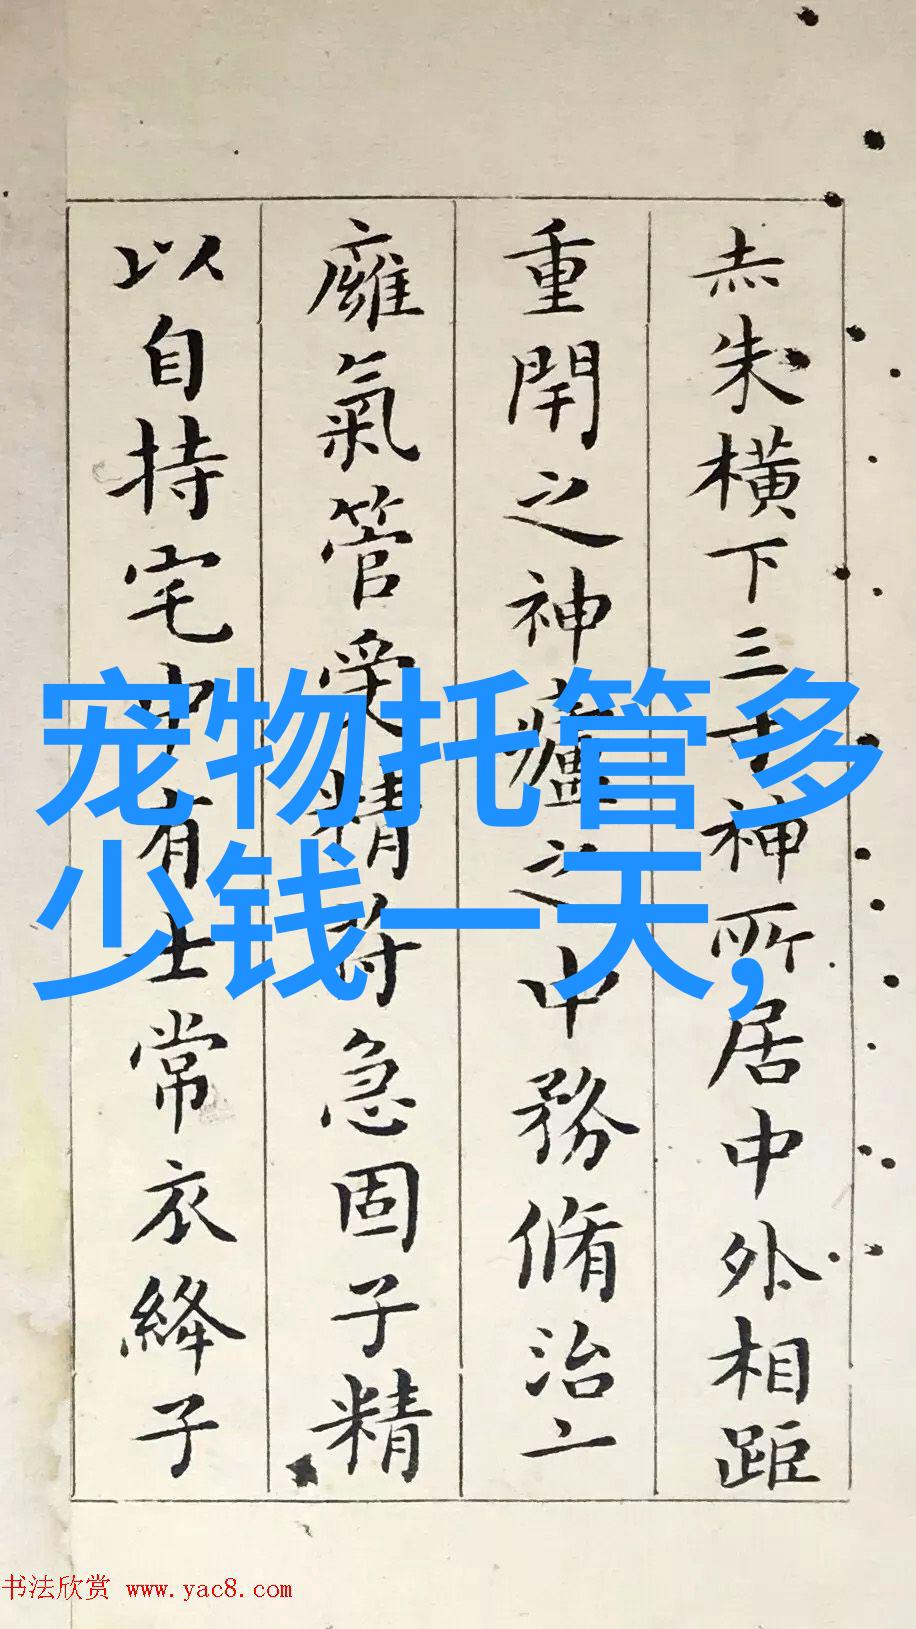 赤朱橫下三寸神所居中外相距
重閈之神廬之中務脩治二
廱氣管受精符急固子精
以自持宅中有士常衣絳子
宠物托管多
少钱一天,
书法欣赏 www.yac8.com